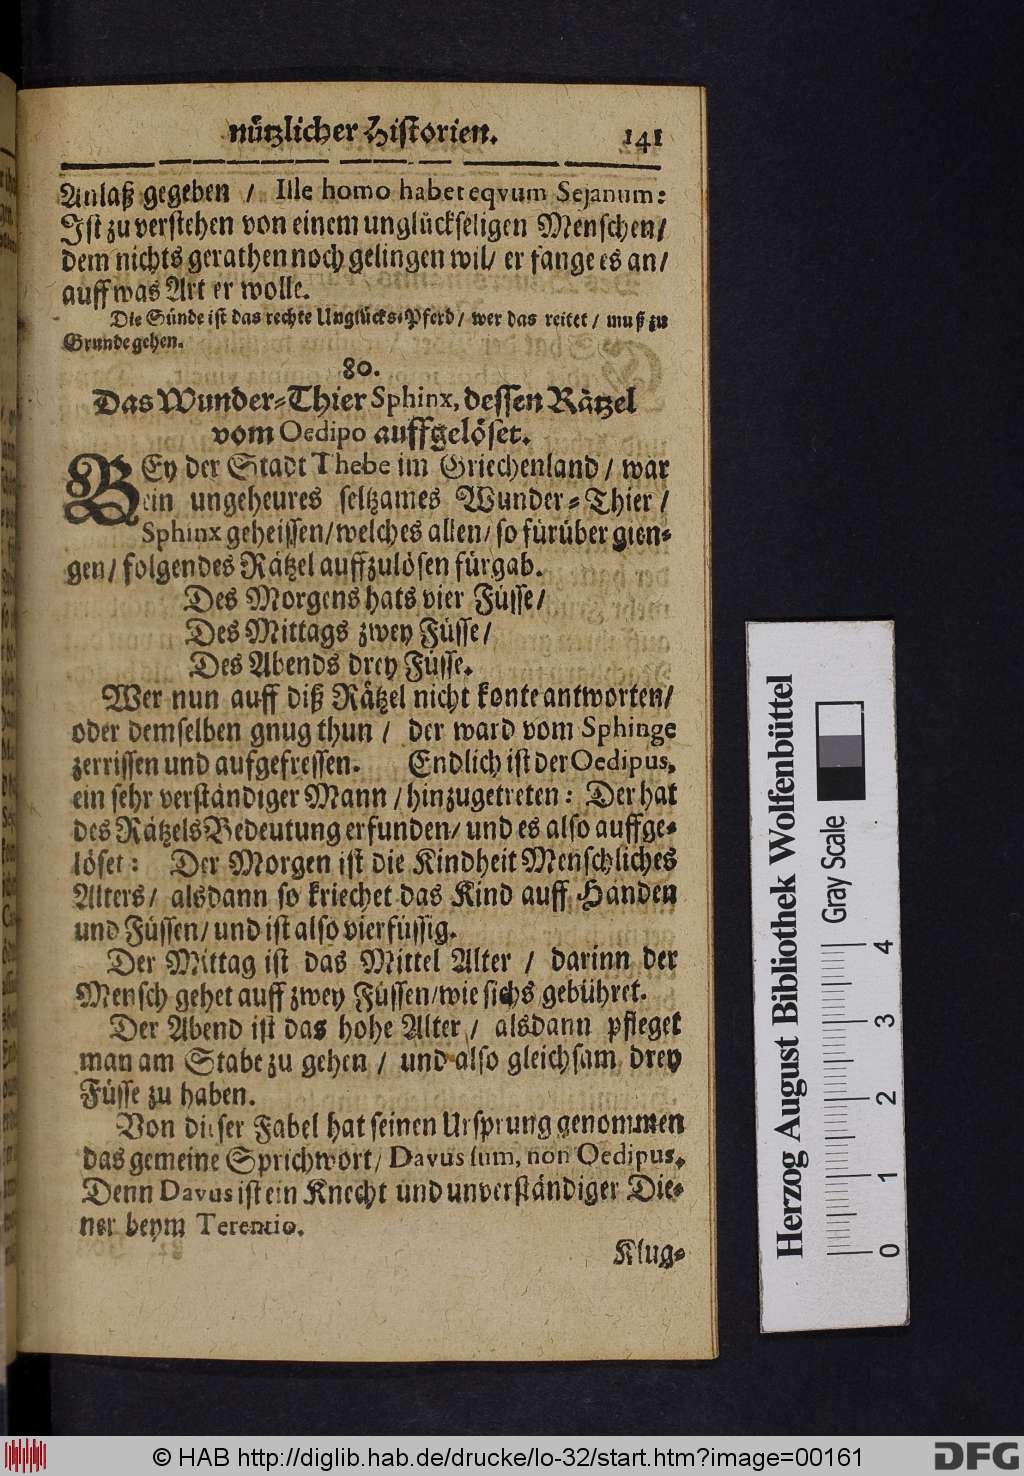 nützlicher Historien. 141
Anlaß gegeben / Ille homo habet eqvum Sejanum:
Ist zu verstehen von einem unglückseligen Menschen/
dem nichts gerathen noch gelingen wil/ er fange es an/
auff was Art er wolle.
Die Sünde ist das rechte Unglücks-Pferd / wer das reitet / muß zu
Grunde gehen.
80.
Das Wunder-Thier Sphinx, dessen Rätzel
vom Oedipo auffgelöset.
BEy der Stadt Thebe im Griechenland / war
ein ungeheures seltzames Wunder-Thier /
Sphinx geheissen/welches allen/ so fürüber gien-
gen/ folgendes Rätzel auffzulösen fürgab.
Des Morgens hats vier Füsse/
Des Mittags zwey Füsse/
Des Abends drey Füsse.
Wer nun auff diß Rätzel nicht konte antworten/
oder demselben gnug thun / der ward vom Sphinge
zerrissen und aufgefressen. Endlich ist der Oedipus,
ein sehr verständiger Mann / hinzugetreten: Der hat
des Rätzels Bedeutung erfunden/ und es also auffge-
löset: Der Morgen ist die Kindheit Menschliches
Alters/ alsdann so kriechet das Kind auff Händen
und Füssen/ und ist also vierfüssig.
Der Mittag ist das Mittel Alter / darinn der
Mensch gehet auff zwey Füssen/wie sichs gebühret.
Der Abend ist das hohe Alter / alsdann pfleget
man am Stabe zu gehen / und also gleichsam drey
Füsse zu haben.
Von dieser Fabel hat seinen Ursprung genommen
das gemeine Sprichwort/ Davus sum, non Oedipus.
Denn Davus ist ein Knecht und unverständiger Die-
ner beym Terentio.
Klug-
Herzog August Bibliothek Wolfenbüttel
Gray Scale
0 1 2 3 4
© HAB http://diglib.hab.de/drucke/lo-32/start.htm?image=00161
DFG